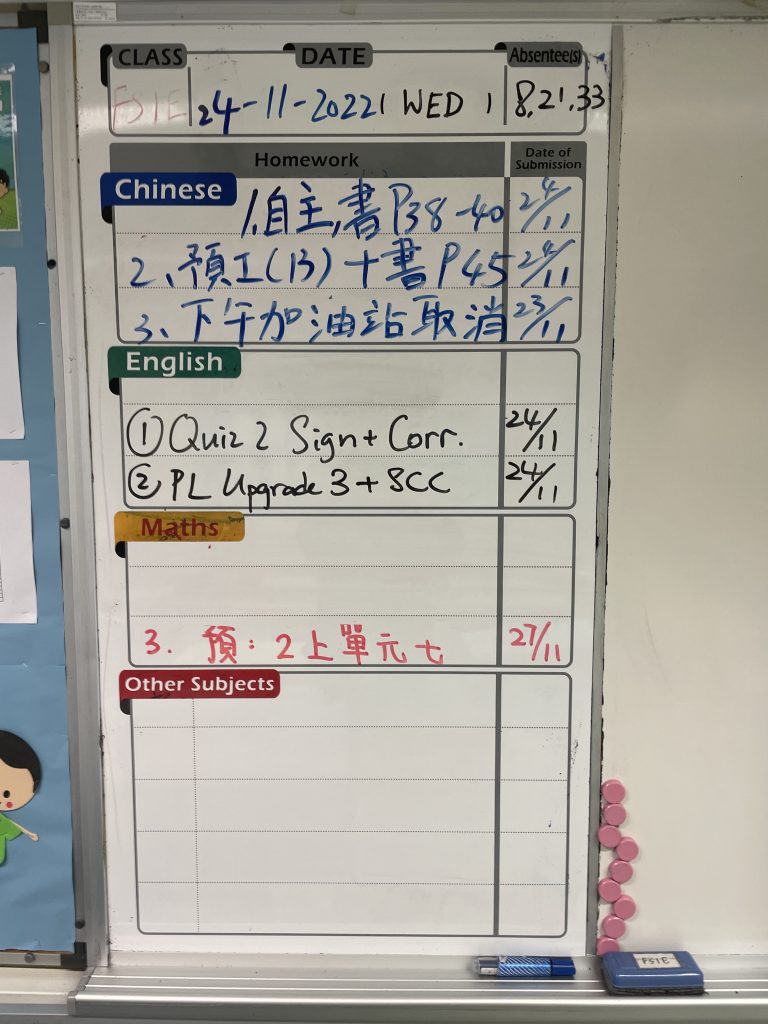 CLASS DATE Absentee(s)
24-11-2022 ( WED ) 8.21.33
Homework Date of Submission
Chinese
1.自主,書 P38-40 24/11
2、預工(13)+書 P45 24/11
3、下午加油站取消 23/11
English
① Quiz 2 Sign + Corr. 24/11
② PL Upgrade 3 + SCC 24/11
Maths
3. 預:2上單元七 27/11
Other Subjects